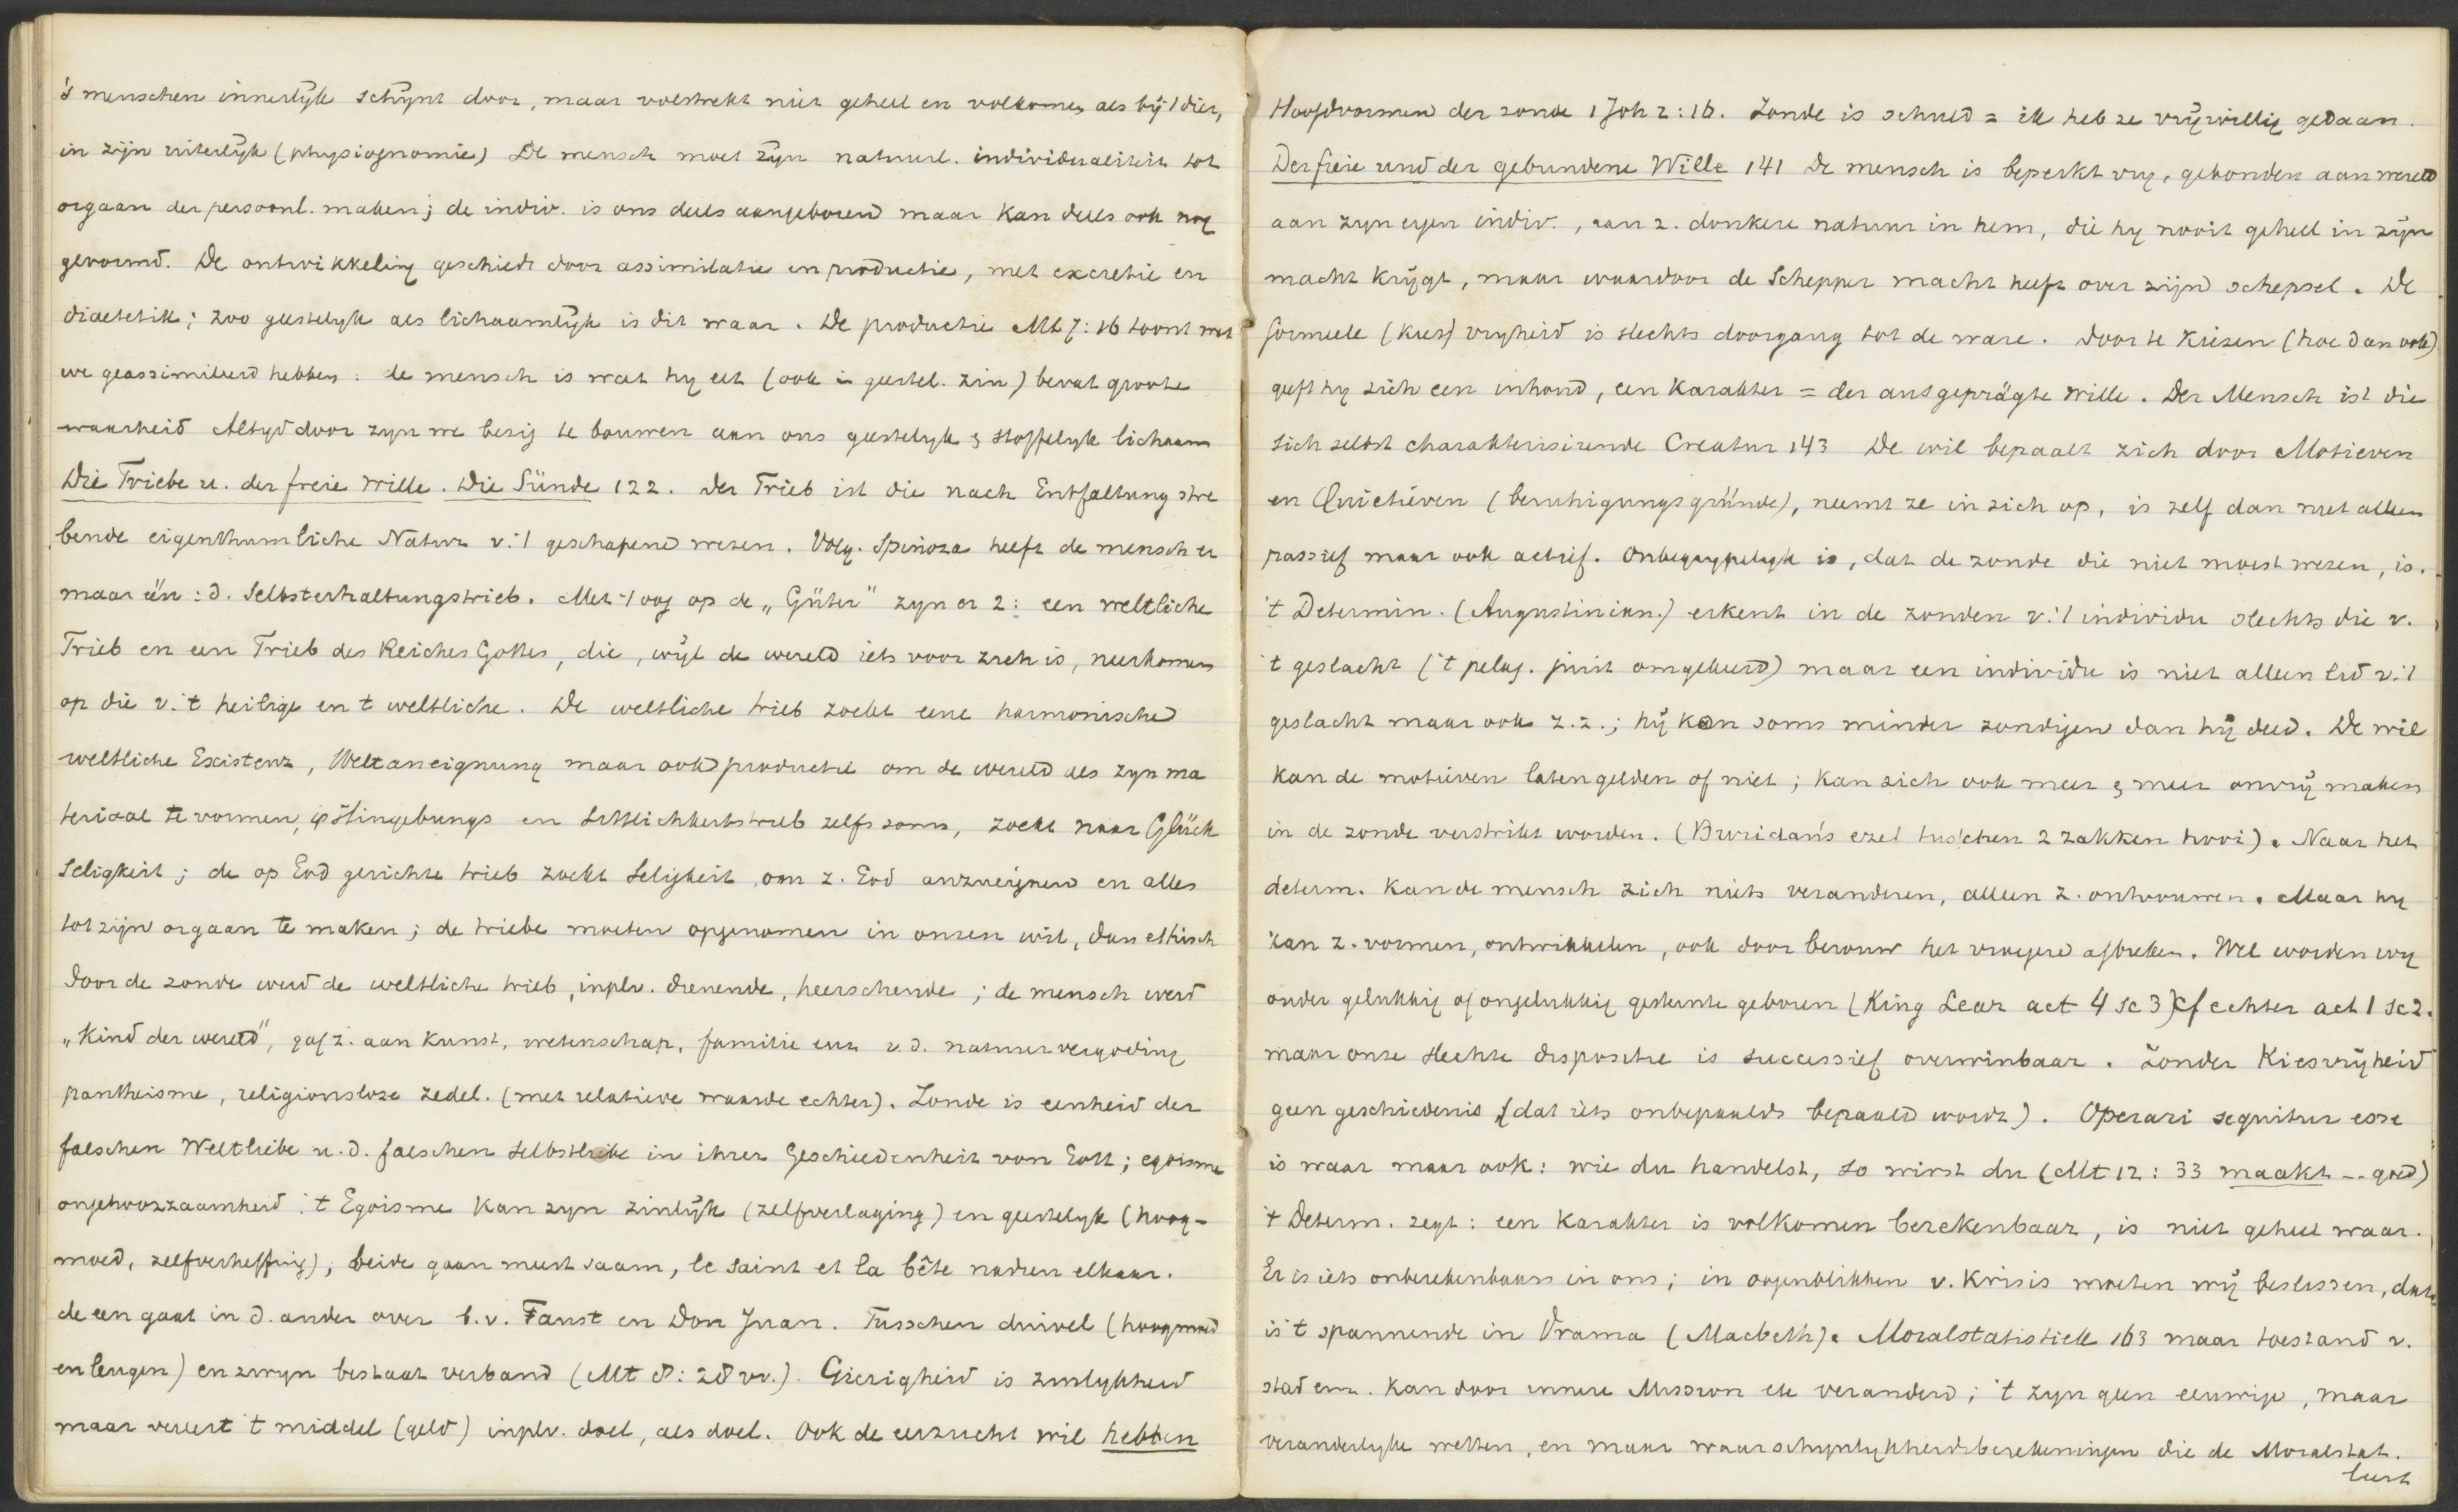 's menschen innerlijk schijnt door, maar volstrekt niet geheel en volkomen als bij 't dier,
in zijn uiterlijk (physiognomie) De mensch moet zijn natuurl. individualiteit tot
orgaan der persoonl. maken; de indiv. is ons deels aangeboren maar kan deels ook nog
gevormd. De ontwikkeling geschiedt door assimilatie en productie, met excretie en
diaetetik; zoo geestelyk als lichaamlijk is dit waar. De productie Mt 7:16 toont wat
we geassimileerd hebben: de mensch is wat hy eet (ook in geestel. zin) bevat groote
waarheid Altyd door zyn we bezig te bouwen aan ons geestelyk & stoffelyk lichaam
Die Triebe u. der freie Wille. Die Sünde 122. Der Trieb ist die nach Entfaltung stre
bende eigenthumliche Natur v. 't geschapene wezen. Volg. Spinoza heeft de mensch er
maar één: d. Selbsterhaltungstrieb. Met 't oog op de „Güter" zyn er 2: een weltliche
Trieb en een Trieb des Reiches Gottes, die, wijl de wereld iets voor zich is, neerkomen
op die v. 't heilige en t weltliche. De weltliche trieb zoekt eene harmonische
weltliche Existenz, Weltaneignung maar ook productie om de wereld als zyn ma
teriaal te vormen, is Hingebungs en Sittlichkeitstrieb zelfs soms, zoekt naar Glück
seligkeit; de op God gerichte trieb zoekt Seligkeit om z. God anzueignen en alles
tot zijn orgaan te maken; de triebe moeten opgenomen in onzen wil, dan ethisch
Door de zonde werd de weltliche trieb, inplv. dienende, heerschende; de mensch werd
„Kind der wereld", gaf z. aan kunst, wetenschap, familie enz v. d. natuurvergoding
pantheisme, religionsloze zedel. (met relatieve waarde echter). Zonde is eenheid der
falschen Weltliebe u. d. falschen Selbstliebe in ihrer Geschiedenheit von Gott; egoisme
ongehoorzaamheid 't Egoisme kan zyn zinlijk (zelfverlaging) en geestelyk (hoog-
moed, zelfverheffing), beide gaan meest saam, le saint et la bête naderen elkaar.
de een gaat in d. ander over b.v. Faust en Don Juan. Tusschen duivel (hoogmoed
en leugen) en zwyn bestaat verband (Mt 8:28 vv.). Gierigheid is zinlykheid
maar vereert 't middel (geld) inplv. doel, als doel. Ook de eerzucht wil hebben
Hoofdvormen der zonde 1 Joh 2:16. Zonde is schuld = ik heb ze vrijwillig gedaan.
Der freie und der gebundene Wille 141 De mensch is beperkt vry, gebonden aan wereld
aan zyn eigen indiv., aan z. donkere natuur in hem, die hy nooit geheel in zijn
macht krijgt, maar waardoor de Schepper macht heeft over zijn schepsel. De
formeele (kies) vryheid is slechts doorgang tot de ware. Door te kiezen (hoe dan ook)
geeft hy zich een inhoud, een karakter = der ausgeprägte Wille. Der Mensch ist die
sich selbst charakterisirende Creatur 143 De wil bepaalt zich door Motieven
en Quietieven (beruhigungsgründe), neemt ze in zich op, is zelf dan niet alleen
passief maar ook actief. Onbegrypelyk is, dat de zonde die niet moest wezen, is.
't Determin. (Augustinian.) erkent in de zonden v. 't individu slechts die v.
't geslacht ('t pelag. juist omgekeerd) maar een individu is niet alleen lid v. 't
geslacht maar ook z.z.; hij kan soms minder zondigen dan hij deed. De wil
kan de motieven laten gelden of niet; kan zich ook meer & meer onvrij maken
in de zonde verstrikt worden. (Buridan's ezel tusschen 2 zakken hooi). Naar het
determ. kan de mensch zich niets veranderen, alleen z. ontvouwen. Maar hy
kan z. vormen, ontwikkelen, ook door berouw het vroegere afbreken. Wel worden wy
onder gelukkig of ongelukkig gesternte geboren (King Lear act 4 sc 3) cf echter act 1 sc 2.
maar onze slechte dispositie is successief overwinbaar. Zonder Kiesvrijheid
geen geschiedenis (dat iets onbepaalds bepaald wordt). Operari sequitur esse
is waar maar ook: wie du handelst, so wirst du (Mt 12:33 maakt -- goed)
't Determ. zegt: een karakter is volkomen berekenbaar, is niet geheel waar.
Er is iets onberekenbaars in ons; in oogenblikken v. krisis moeten wij beslissen, dat
is 't spannende in Drama (Macbeth). Moralstatistiek 163 maar toestand v.
stad enz. kan door innere Mission etc veranderd; 't zyn geen eeuwige, maar
veranderlyke wetten, en maar waarschynlykheidsberekeningen die de Moralstat.
leert